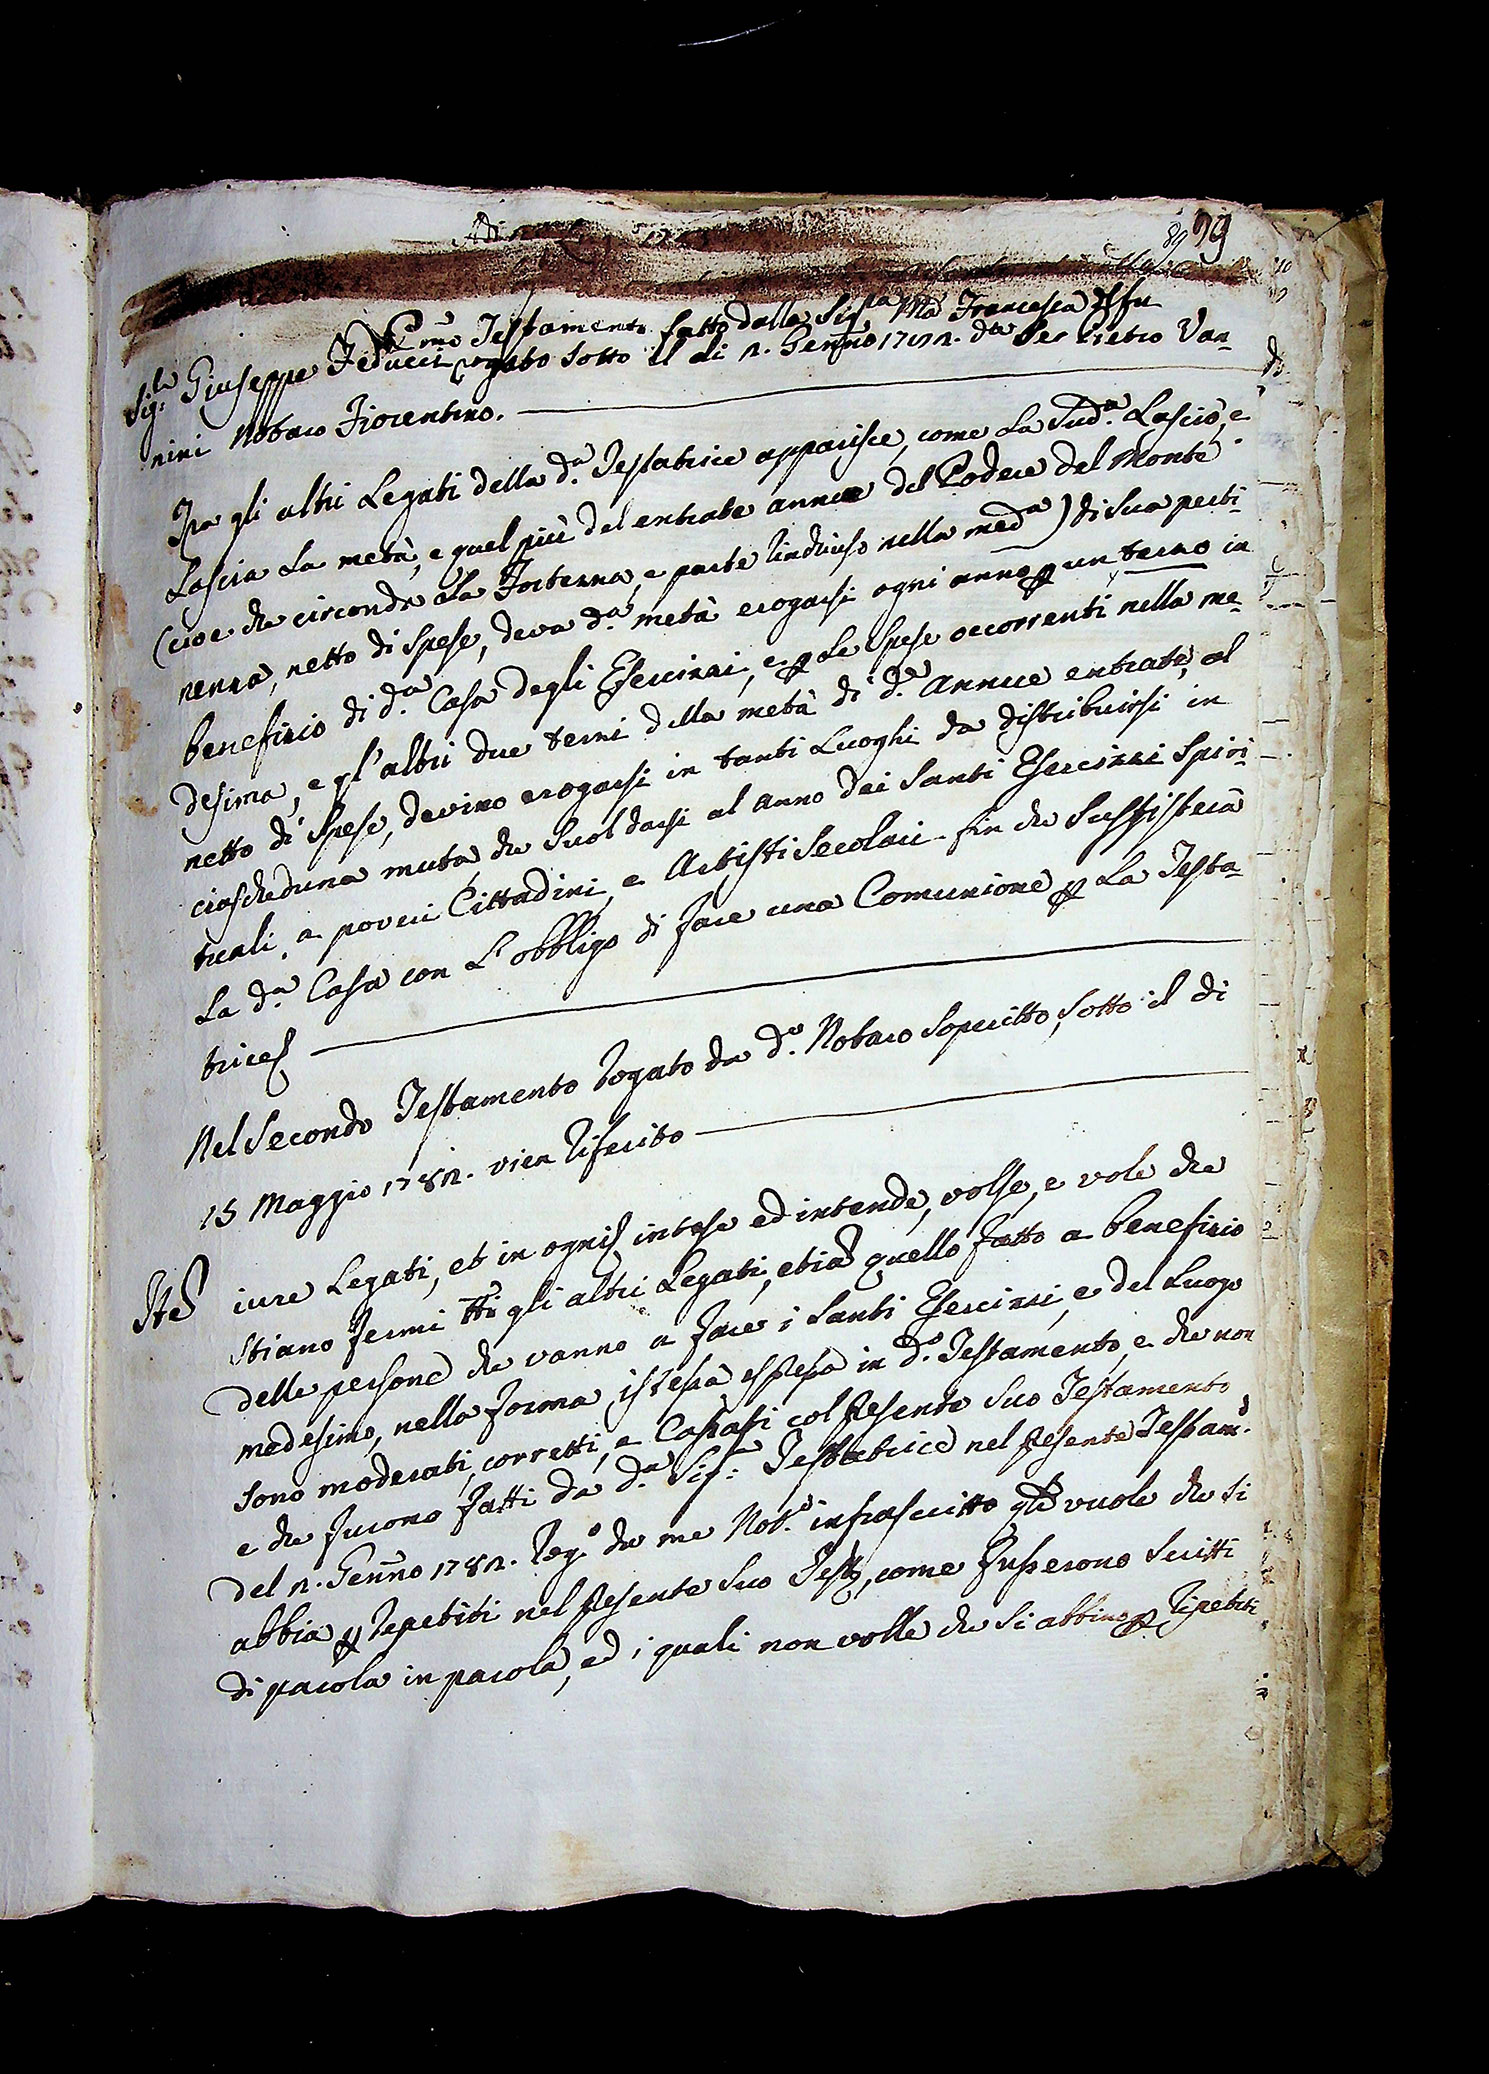 89 99
Adi
Pmo Testamento fatto dalla Sigra Ma Francesca
Sig.la Giuseppe Feducci rogato sotto il di 2. Genno 1782. da Ser Pietro Van-
nini Notaro Fiorentino.
Fra gli altri Legati della d.a Testatrice apparisce, come La Sud.a Lasciò, e
Lascia La metà, e quel più del entrate annue del Podere del Monte
(cioe che circonda La Fortezza, e parte Rinchiuso nella meda) di Sua perti-
nenza, netto di Spese, deva d.a metà erogarsi ogni anno p un terzo in
benefizio di d.a Casa degli Esercizzi, e p Le Spese occorrenti nella me-
desima, e gl'altri due terzi della metà di d.e annue entrate, al
netto di Spese, devino erogarsi in tanti Luoghi da distribuirsi in
ciascheduna muta, che Suol darsi al anno dei Santi Esercizzi Spiri-
tuali, a poveri Cittadini, e Artisti Secolari fin che Sussisterà
La d.a Casa con L'obbligo di fare una Comunione p La Testa-
trice
Nel Secondo Testamento Rogato da d.o Notaro Sopracitto, Sotto il di
15 Maggio 1782. vien Riferito
Ite iure Legati, et in ogni intese ed intende, volse, e vole che
stiano fermi tti gli altri Legati, etia quello fatto a benefizio
delle persone che vanno a fare i Santi Esercizzi, e del Luogo
medesimo, nella forma istessa espressa in d.o Testamento, e che non
sono moderati, corretti, e Cassati col presente Suo Testamento
e che furono fatti da d.a Sig.a Testatrice nel presente Testam.o
del 2. Genno 1782. Rog.o da me Not.o infrascritto qli vuole che si
abbia p Repetiti nel presente Suo Testo, come fussero Scritti
di parola in parola, ed i quali non volle che Si abbino p Ripetiti